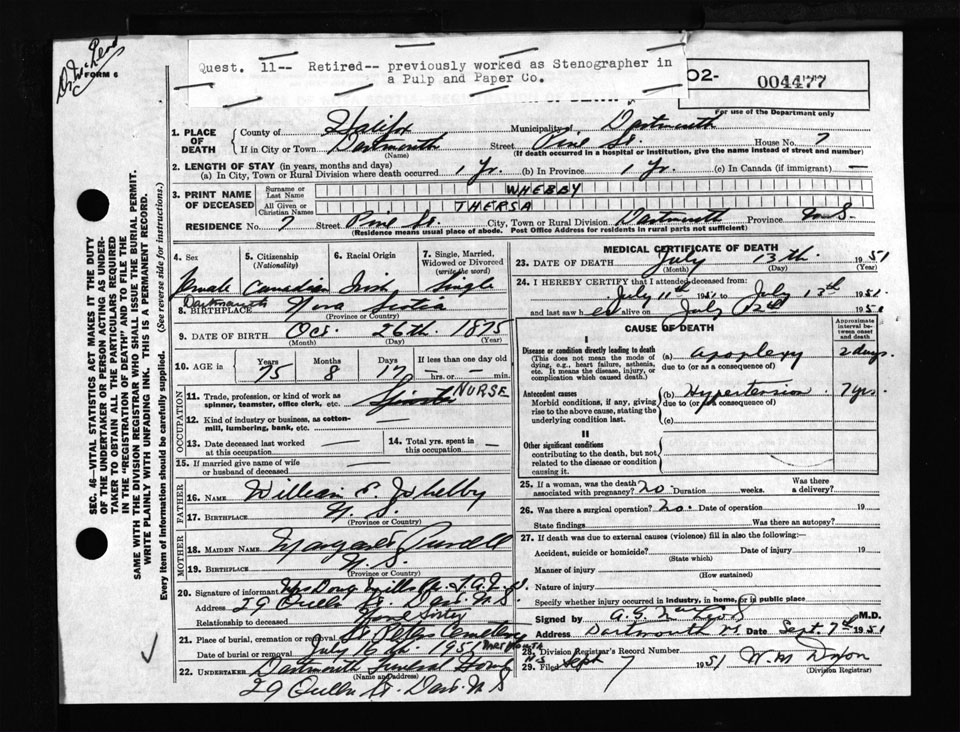 Quest. 11-- Retired-- previously worked as Stenographer in
a Pulp and Paper Co.
FORM 6
O2-
004477
For use of the Department only
1. PLACE OF DEATH
County of Halifax Municipality of Dartmouth
If in City or Town Dartmouth Street St. House No. 7
(Name) (If death occurred in a hospital or institution, give the name instead of street and number)
2. LENGTH OF STAY (in years, months and days)
(a) In City, Town or Rural Division where death occurred 1 Yr. (b) In Province 1 Yr. (c) In Canada (if immigrant) —
3. PRINT NAME OF DECEASED
Surname or Last Name WHEBBY
All Given or Christian Names THERSA
RESIDENCE No. 7 Street St. City, Town or Rural Division Dartmouth Province N.S.
(Residence means usual place of abode. Post Office Address for residents in rural parts not sufficient)
4. Sex
5. Citizenship (Nationality)
6. Racial Origin
7. Single, Married, Widowed or Divorced (write the word)
Female Canadian Irish Single
Dartmouth
8. BIRTHPLACE Nova Scotia
(Province or Country)
9. DATE OF BIRTH Oct 26th. 1875
(Month) (Day) (Year)
10. AGE in Years Months Days If less than one day old
75 8 17 — hrs. or — min.
OCCUPATION
11. Trade, profession, or kind of work as spinner, teamster, office clerk, etc. NURSE
12. Kind of industry or business, as cotton-mill, lumbering, bank, etc. —
13. Date deceased last worked at this occupation —
14. Total yrs. spent in this occupation —
15. If married give name of wife or husband of deceased —
FATHER
16. NAME William E. Whebby
17. BIRTHPLACE N. S.
(Province or Country)
MOTHER
18. MAIDEN NAME Margaret Purcell
19. BIRTHPLACE N. S.
(Province or Country)
20. Signature of informant Mrs Doug Mills
Address 29 Queen St. Dart. N.S.
Relationship to deceased
21. Place of burial, cremation or removal St. Peters Cemetery
Date of burial or removal July 16th. 1951
22. UNDERTAKER Dartmouth Funeral Home
(Name and address)
29 Queen St. Dart. N S
MEDICAL CERTIFICATE OF DEATH
23. DATE OF DEATH July 13th. 1951
(Month) (Day) (Year)
24. I HEREBY CERTIFY that I attended deceased from:
July 11th 1951 to July 13th 1951
and last saw her alive on July 1951
CAUSE OF DEATH
Approximate interval between onset and death
I
Disease or condition directly leading to death (a) Apoplexy 2 days
(This does not mean the mode of dying, e.g., heart failure, asthenia, etc. It means the disease, injury, or complication which caused death.)
due to (or as a consequence of)
Antecedent causes (b) Hypertension 7 yrs
Morbid conditions, if any, giving rise to the above cause, stating the underlying condition last.
due to (or as a consequence of)
(c)
II
Other significant conditions contributing to the death, but not related to the disease or condition causing it.
25. If a woman, was the death associated with pregnancy? no Duration weeks. Was there a delivery?
26. Was there a surgical operation? no. Date of operation 19
State findings Was there an autopsy?
27. If death was due to external causes (violence) fill in also the following:—
Accident, suicide or homicide? Date of injury 19
(State which)
Manner of injury
(How sustained)
Nature of injury
Specify whether injury occurred in industry, in home, or in public place
Signed by M.D.
Address Dartmouth Date Sept. 7th 1951
28. Division Registrar's Record Number
29. Filed Sept 7 1951 W. M. Dixon
(Division Registrar)
SEC. 46—VITAL STATISTICS ACT MAKES IT THE DUTY
OF THE UNDERTAKER OR PERSON ACTING AS UNDER-
TAKER TO OBTAIN ALL THE PARTICULARS REQUIRED
IN THE "REGISTRATION OF DEATH" AND TO FILE THE
SAME WITH THE DIVISION REGISTRAR WHO SHALL ISSUE THE BURIAL PERMIT.
WRITE PLAINLY WITH UNFADING INK. THIS IS A PERMANENT RECORD.
Every item of information should be carefully supplied. (See reverse side for instructions.)